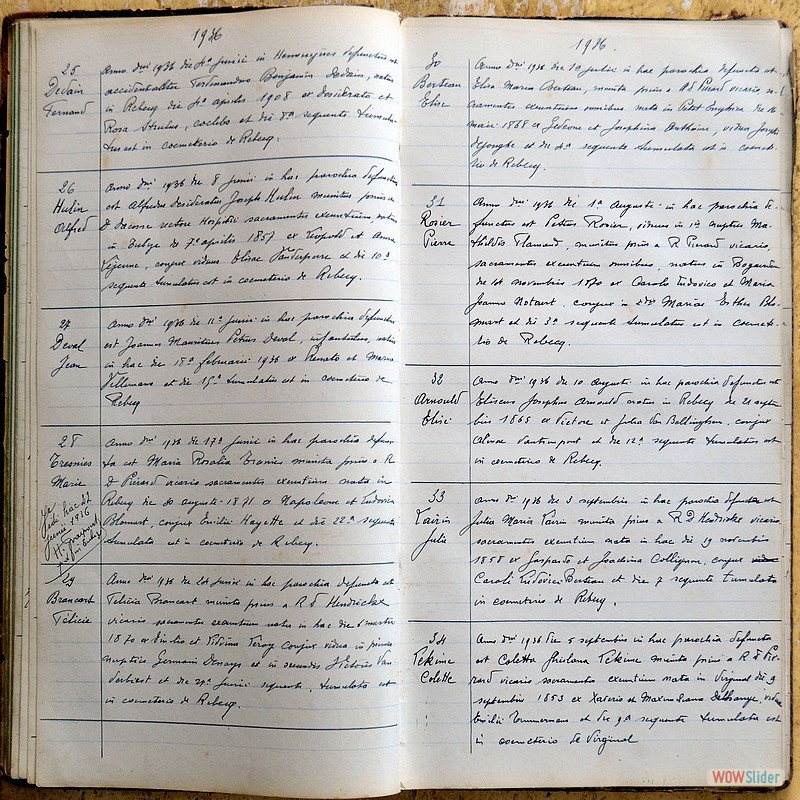 1936
25
Devain
Fernand
Anno dni 1936 die 4a Junii in Hennuyères defunctus est
accidentaliter Ferdinandus Benjamin Devain, natus
in Rebecq die 4a aprilis 1908 ex Desiderato et
Rosa Struelus, coelebs et die 8a sequente tumula-
tus est in coemeterio de Rebecq.
26
Hulin
Alfred
Anno dni 1936 die 8 Junii in hac parochia defunctus
est Alfredus Desideratus Joseph Hulin munitus prius a
D. Dacosse rectore Hospitii sacramentis exeuntium, natus
in Enbge die 7a aprilis 1857 ex Leopoldo et Anna
Lejeune, conjux viduus Elisae Vanderperre et die 10a
sequente tumulatus est in coemeterio de Rebecq.
27
Deval
Jean
Anno dni 1936 die 11a Junii in hac parochia defunctus
est Joannes Mauritius Petrus Deval, infantulus, natus
in hac die 18a februarii 1936 ex Renato et Maria
Villemans et die 15a tumulatus est in coemeterio de
Rebecq
28
Tresnies
Marie
Anno dni 1936 die 17a Junii in hac parochia defunc-
ta est Maria Rosalia munita prius a R
D Pierard vicario sacramentis exeuntium nata in
Rebecq die 30 augusti 1871 ex Napoleone et Ludovica
Blomart, conjux Emilii Hayette et die 22a sequente
tumulata est in coemeterio de Rebecq.
hac 22
Junii 1936
29
Brancart
Félicie
Anno dni 1936 die 24 Junii in hac parochia defuncta est
Felicia Brancart munita prius a R D Hendrickx
vicario sacramentis exeuntium nata in hac die 6 martii
1870 ex Emilio et Leroy conjux vidua in primis
nuptiis Germani Denays et in secundis Victoris Van
Verbiest et die 27a Junii sequente, tumulata est
in coemeterio de Rebecq.
1936.
30
Berteau
Elise
Anno dni 1936 die 10 Julii in hac parochia defuncta est
Elisa Maria Berteau, munita prius a R D Pierard vicario sa-
cramentis exeuntium omnibus nata in Petit Enghien die 16
maii 1868 ex Gedeone et Josephina vidua Josephi
Dejonghe et die 14a sequente tumulata est in coemete-
rio de Rebecq.
31
Rosier
Pierre
Anno dni 1936 die 1a Augusti in hac parochia de-
functus est Petrus Rosier, viduus in 1is nuptiis Ma-
thildis Flamand, munitus prius a R Pierard vicario,
sacramentis exeuntium omnibus, natus in Bogaerden
die 14 novembris 1870 ex Carolo Ludovico et Maria
Joanna Notaert, conjux in 2dis Mariae Esther Blo-
mart et die 3a sequente tumulatus est in coemete-
rio de Rebecq.
32
Arnould
Elisé
Anno dni 1936 die 10 Augusti in hac parochia defunctus est
Eliseus Josephus Arnould natus in Rebecq die 21 septem-
bris 1865 ex Victore et Julia Van Bellinghen, conjux
Alinae Vantimpont et die 12a sequente tumulatus est
in coemeterio de Rebecq.
33
Kairis
Julie
Anno dni 1936 die 3 septembris in hac parochia defuncta est
Julia Maria Kairis munita prius a R D Hendrickx vicario
sacramentis exeuntium nata in hac die 19 novembris
1858 ex Gaspardo et Joachina Collignon, conjux
Caroli Ludovici Berteau et die 7 sequente tumulata
in coemeterio de Rebecq.
34
Pekime
Colette
Anno dni 1936 die 5 septembris in hac parochia defuncta
est Coletta Ghislana Pekime munita prius a R D Pie-
rard vicario sacramentis exeuntium nata in Virginal die 9
septembris 1853 ex Xaverio et Maximiliana Delhange, vidua
Emilii Timmermans et die 9a sequente tumulata est
in coemeterio de Virginal
WOWSlider